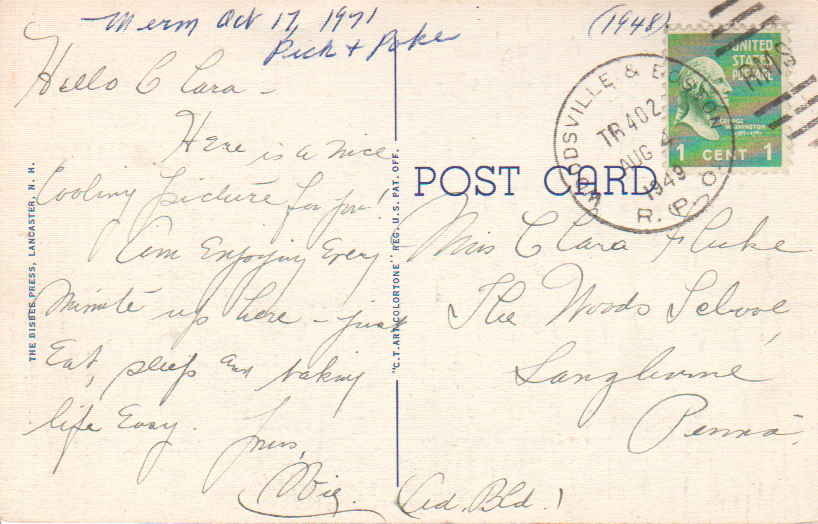 Merm Oct 17, 1971
Pick & Poke
(1948)
Hello Clara -
Here is a nice
Cooling picture for you!
I'm Enjoying Every
Minute up here - just
Eat, sleep and taking
life Easy.
Yours,
THE BISBEE PRESS, LANCASTER, N. H.
"C.T. ART-COLORTONE" REG. U.S. PAT. OFF.
POST CARD
WOODSVILLE & BOSTON
TR 402
AUG 4
1949
R.P.O.
RMS
UNITED
STATES
POSTAGE
GEORGE
WASHINGTON
1 CENT 1
Miss Clara Fluke
The Woods School
Langhorne
Penna.
(Ad. Bld.)